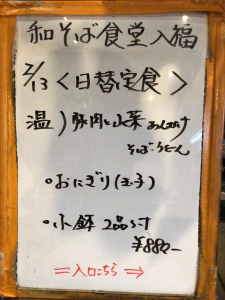 和そば食堂入福
2/13 <日替定食>
温)豚肉と山菜あんかけ
そば・うどん
・おにぎり(玉子)
・小鉢 2品付
¥880-
=入口こちら⇒